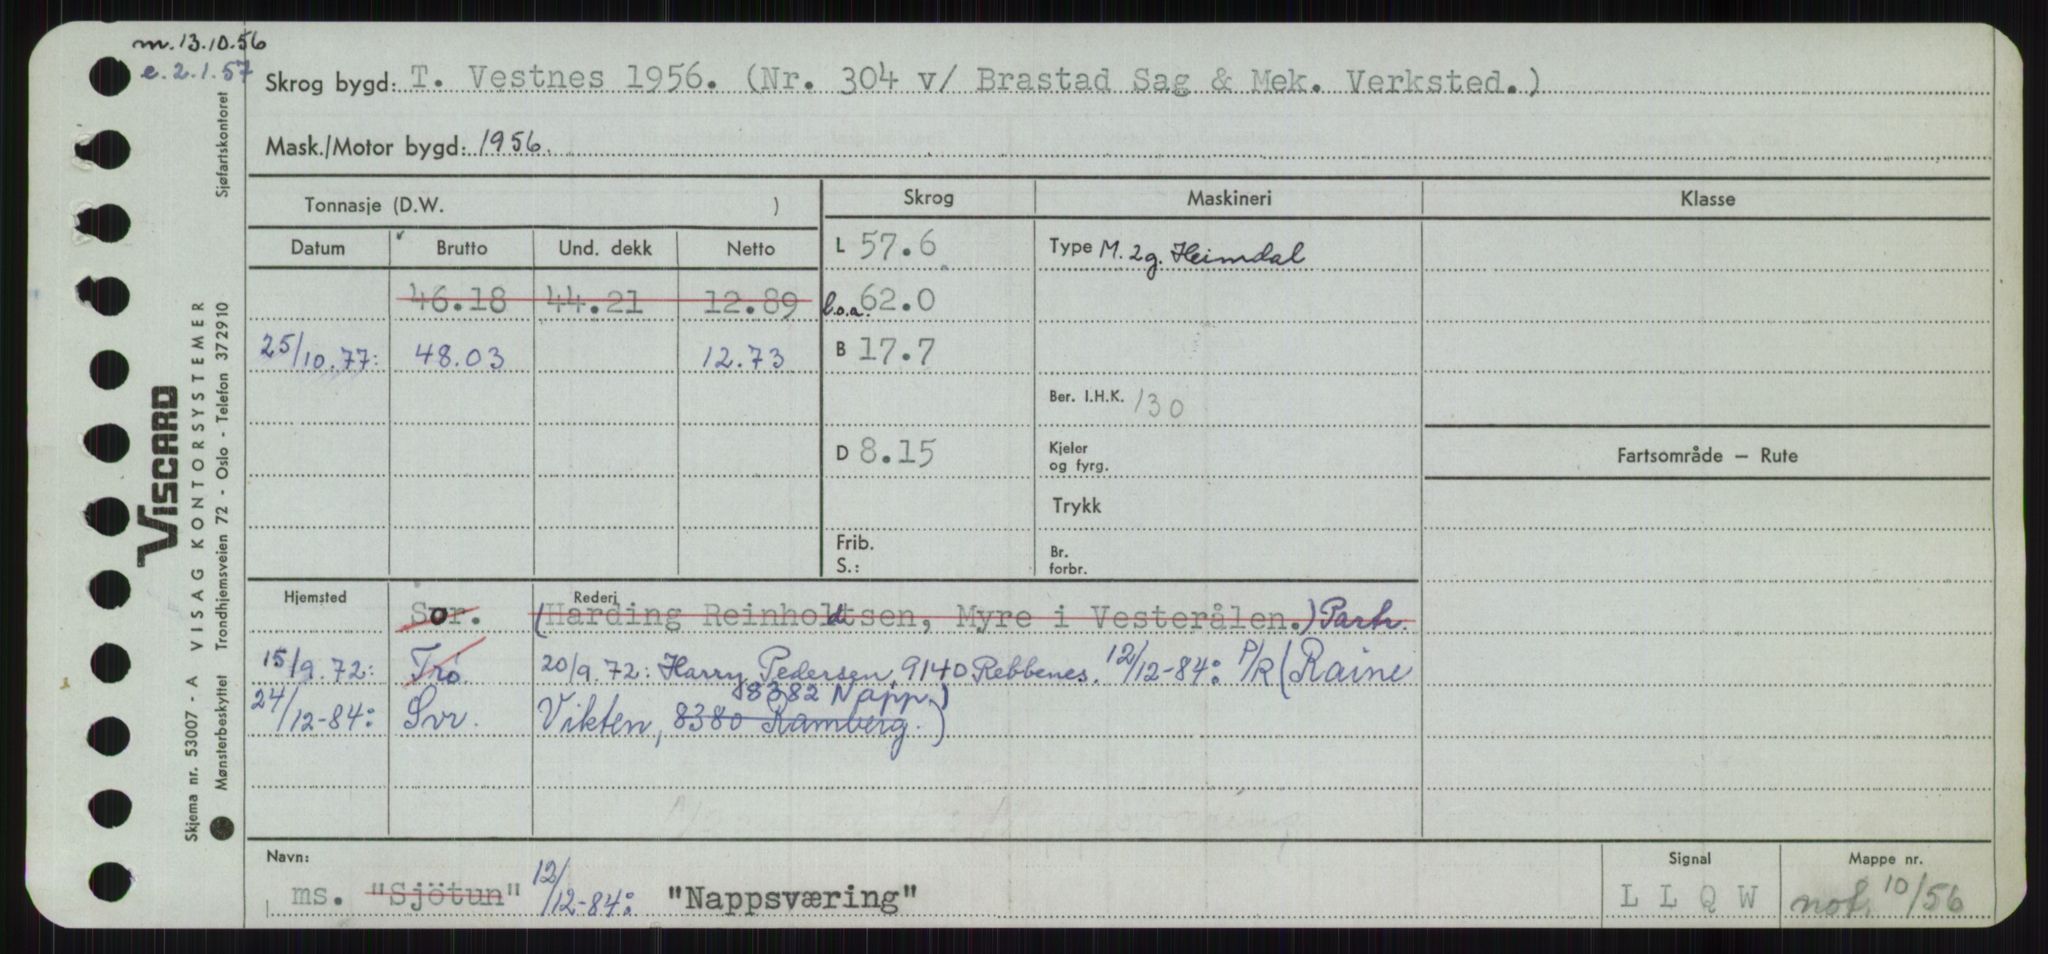 m. 13.10.56
e. 2.1.57
Skrog bygd: T. Vestnes 1956. (Nr. 304 v/ Brastad Sag & Mek. Verksted.)
Mask./Motor bygd: 1956.
Tonnasje (D.W. )
Skrog Maskineri Klasse
Datum Brutto Und. dekk Netto
L 57.6 Type M. 2g. Heimdal
46.18 44.21 12.89 l.o.a. 62.0
25/10.77: 48.03 12.73 B 17.7
Ber. I.H.K. 130
D 8.15 Kjeler
og fyrg.
Fartsområde — Rute
Trykk
Frib.
S.:
Br.
forbr.
Hjemsted Rederi
Sor. (Harding Reinholdtsen, Myre i Vesterålen.) Partr.
15/9.72: Trö 20/9.72: Harry Pedersen, 9140 Rebbenes. 12/12-84: P/R (Raine
8382 Napp.)
24/12-84: Svr. Vikten, 8380 Ramberg.)
Navn: Signal Mappe nr.
ms. "Sjötun" 12/12-84: "Nappsværing" L L Q W not. 10/56
VISCARD
VISAG KONTORSYSTEMER
Skjema nr. 53007 - A
Mønsterbeskyttet Trondhjemsveien 72 - Oslo - Telefon 372910
Sjøfartskontoret